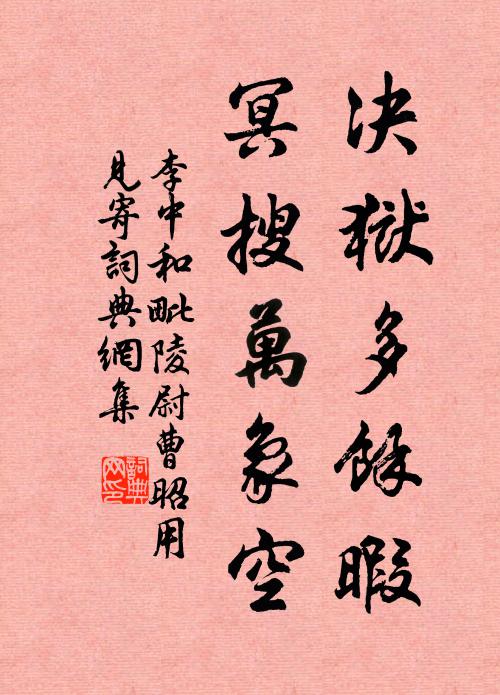 决獄多餘暇
冥搜萬象空
李中和毗陵尉曹昭用
見寄詞典網集
詞典网印